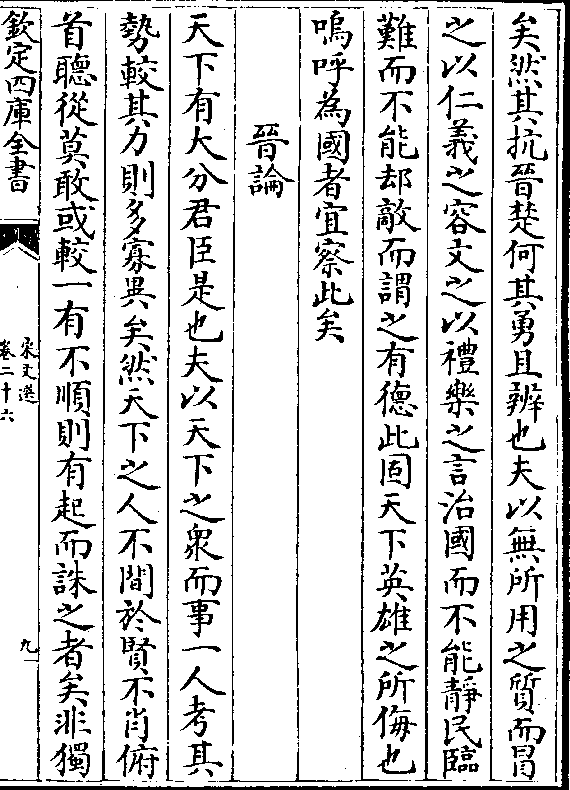 矣然其抗晉楚何其勇且辨也夫以無所用之質而冒
之以仁義之容文之以禮樂之言治國而不能靜民臨
難而不能却敵而謂之有德此固天下英雄之所侮也
嗚呼為國者宜察此矣
晉論
天下有大分君臣是也夫以天下之衆而事一人考其
勢較其力則多寡異矣然天下之人不間於賢不肖俯
首聽從莫敢或較一有不順則有起而誅之者矣非獨
欽定四庫全書
宋文選
卷二十六
九